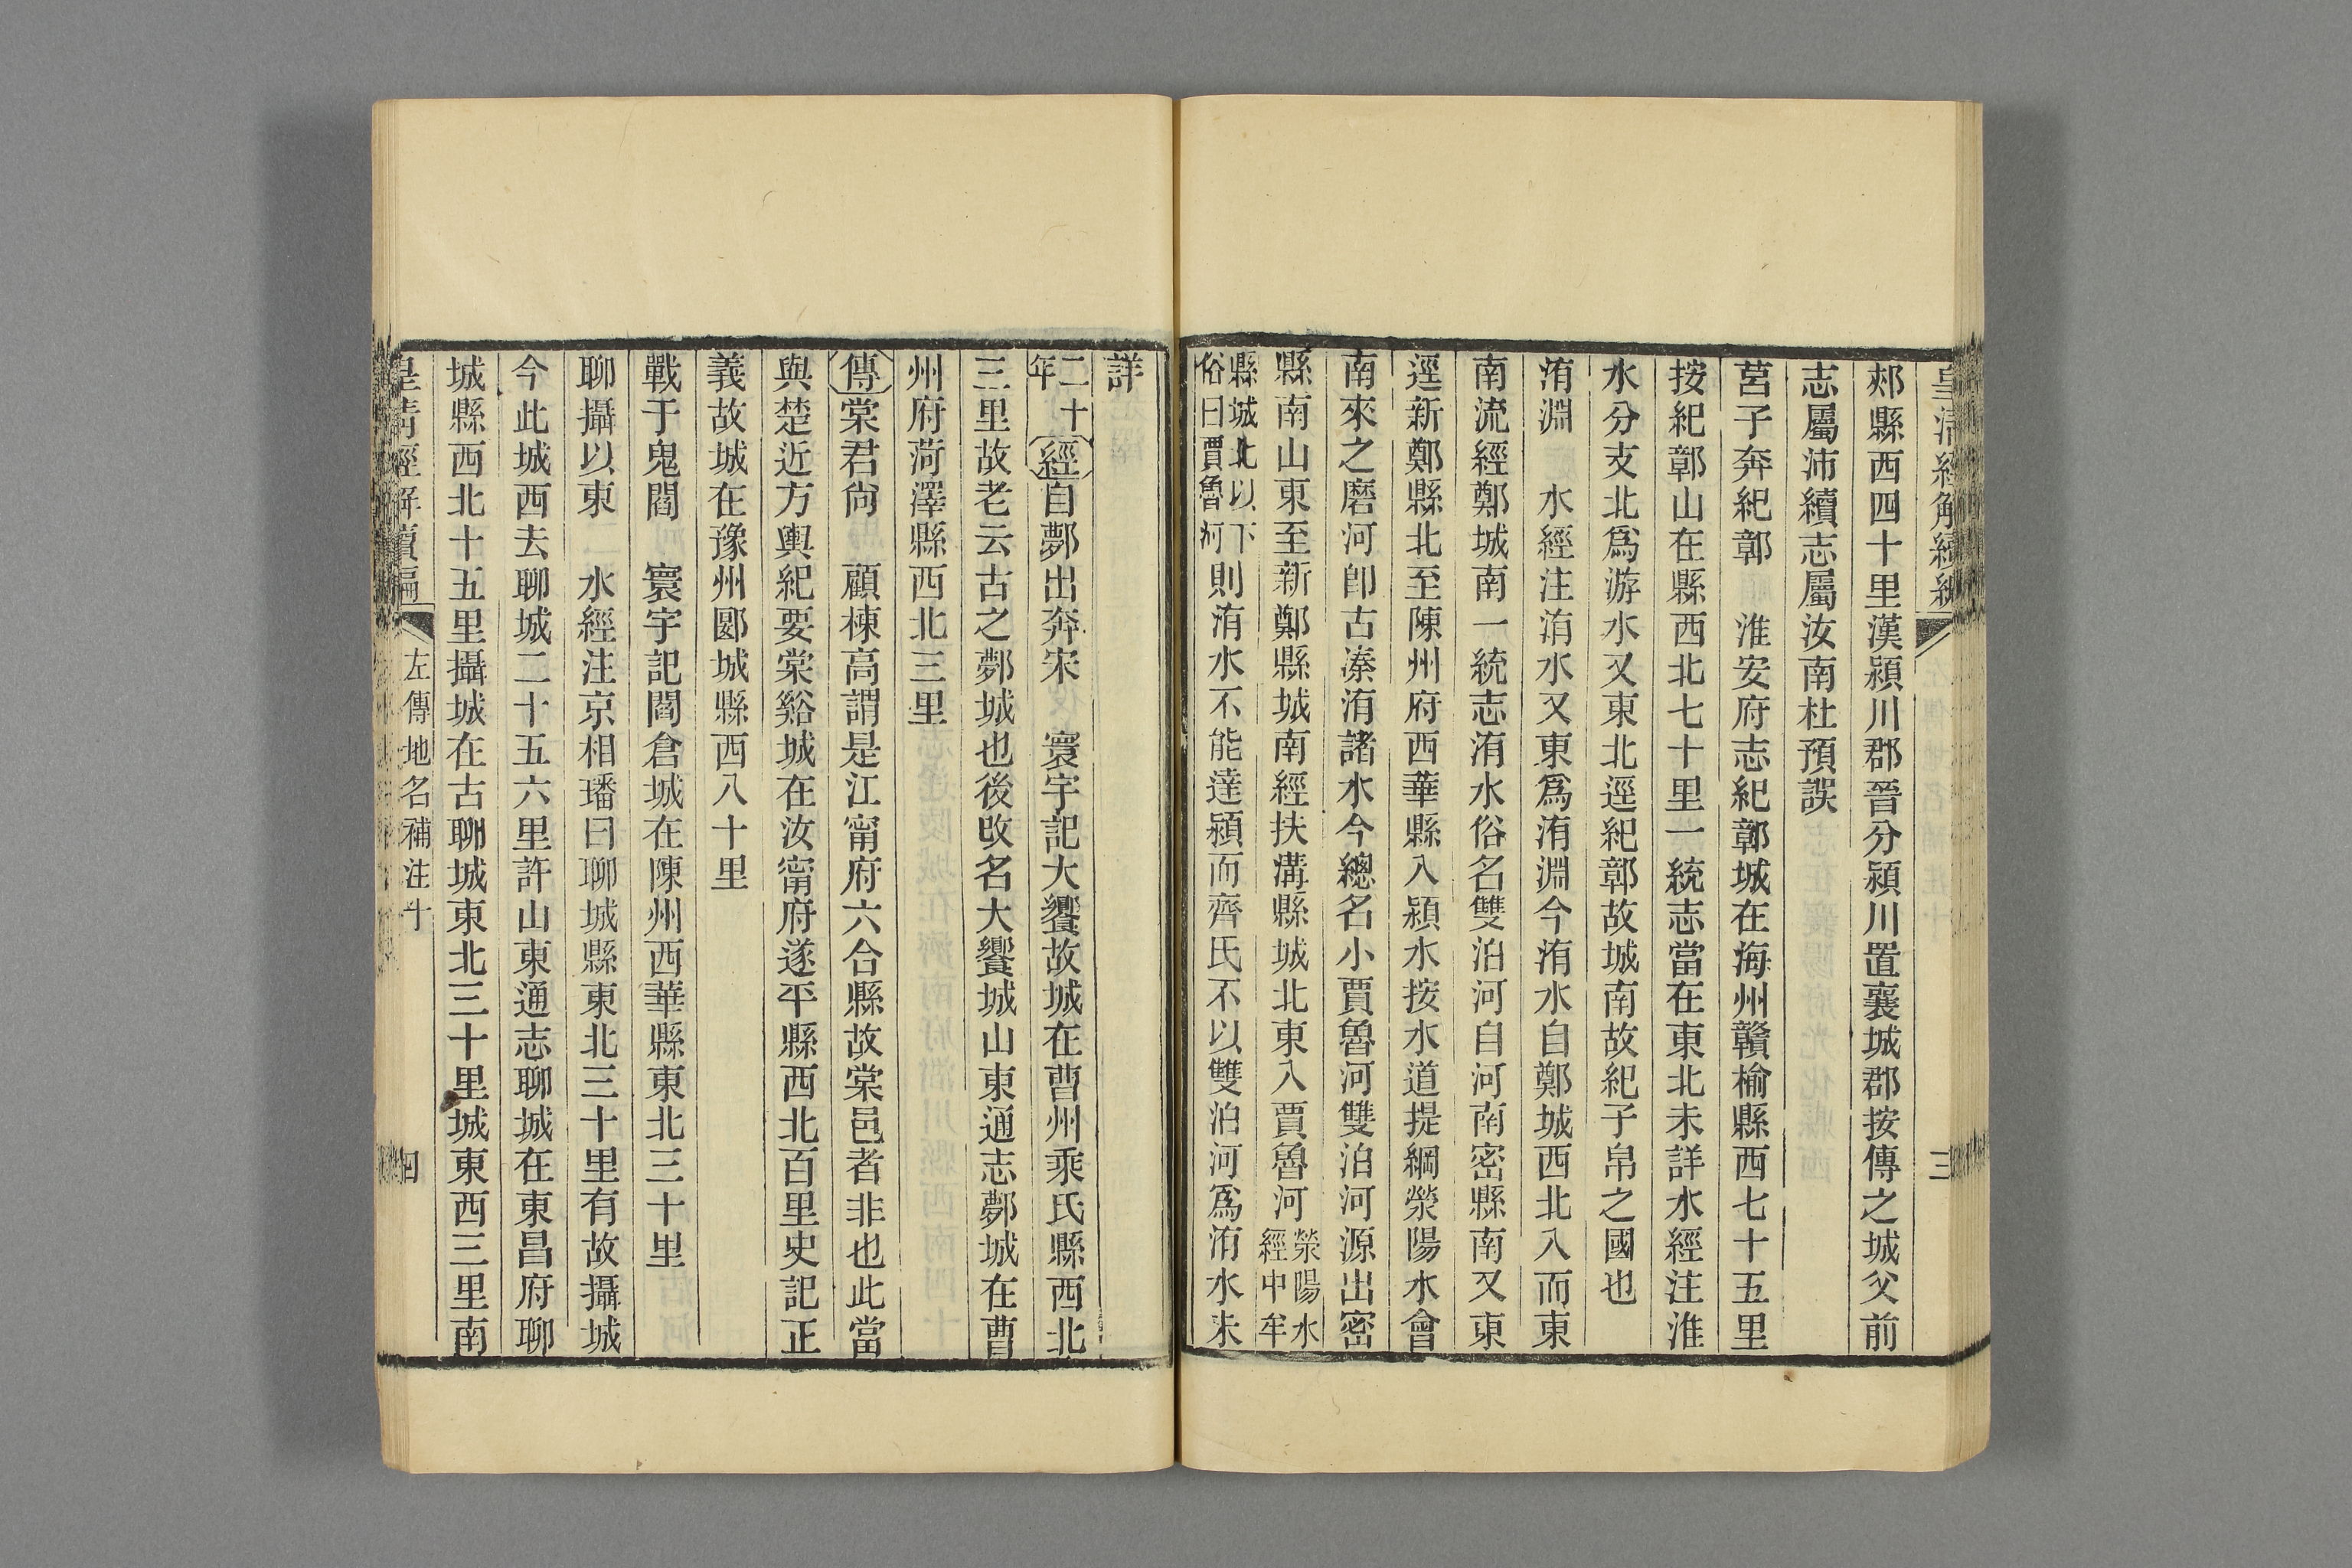 皇清經解續編
三
郟縣西四十里漢潁川郡晉分潁川置襄城郡按傳之城父前
志屬沛續志屬汝南杜預誤
莒子奔紀鄣　淮安府志紀鄣城在海州贛榆縣西七十五里
按紀鄣山在縣西北七十里一統志當在東北未詳水經注淮
水分支北爲游水又東北逕紀鄣故城南故紀子帛之國也
洧淵　水經注洧水又東爲洧淵今洧水自鄭城西北入而東
南流經鄭城南一統志洧水俗名雙泊河自河南密縣南又東
逕新鄭縣北至陳州府西華縣入潁水按水道提綱滎陽水會
南來之磨河卽古溱洧諸水今總名小賈魯河雙泊河源出密
縣南山東至新鄭縣城南經扶溝縣城北東入賈魯河滎陽水經中牟
縣城北以下俗曰賈魯河則洧水不能達潁而齊氏不以雙泊河爲洧水未
詳
二十年經自鄸出奔宋　寰宇記大饗故城在曹州乘氏縣西北
三里故老云古之鄸城也後改名大饗城山東通志鄸城在曹
州府菏澤縣西北三里
傳棠君尙　顧棟高謂是江甯府六合縣故棠邑者非也此當
與楚近方輿紀要棠谿城在汝甯府遂平縣西北百里史記正
義故城在豫州郾城縣西八十里
戰于鬼閻　寰宇記閻倉城在陳州西華縣東北三十里
聊攝以東　水經注京相璠曰聊城縣東北三十里有故攝城
今此城西去聊城二十五六里許山東通志聊城在東昌府聊
城縣西北十五里攝城在古聊城東北三十里城東西三里南
皇清經解續編
左傳地名補注十
四